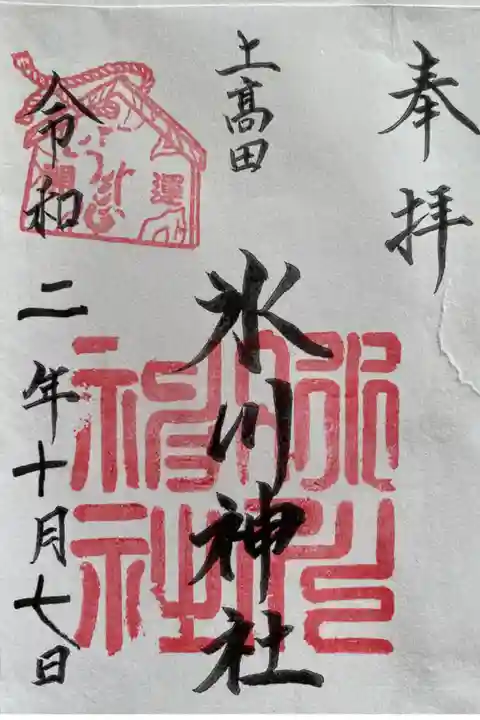 奉拝
上高田
氷川神社
令和二年十月七日
開運
氷川
神社